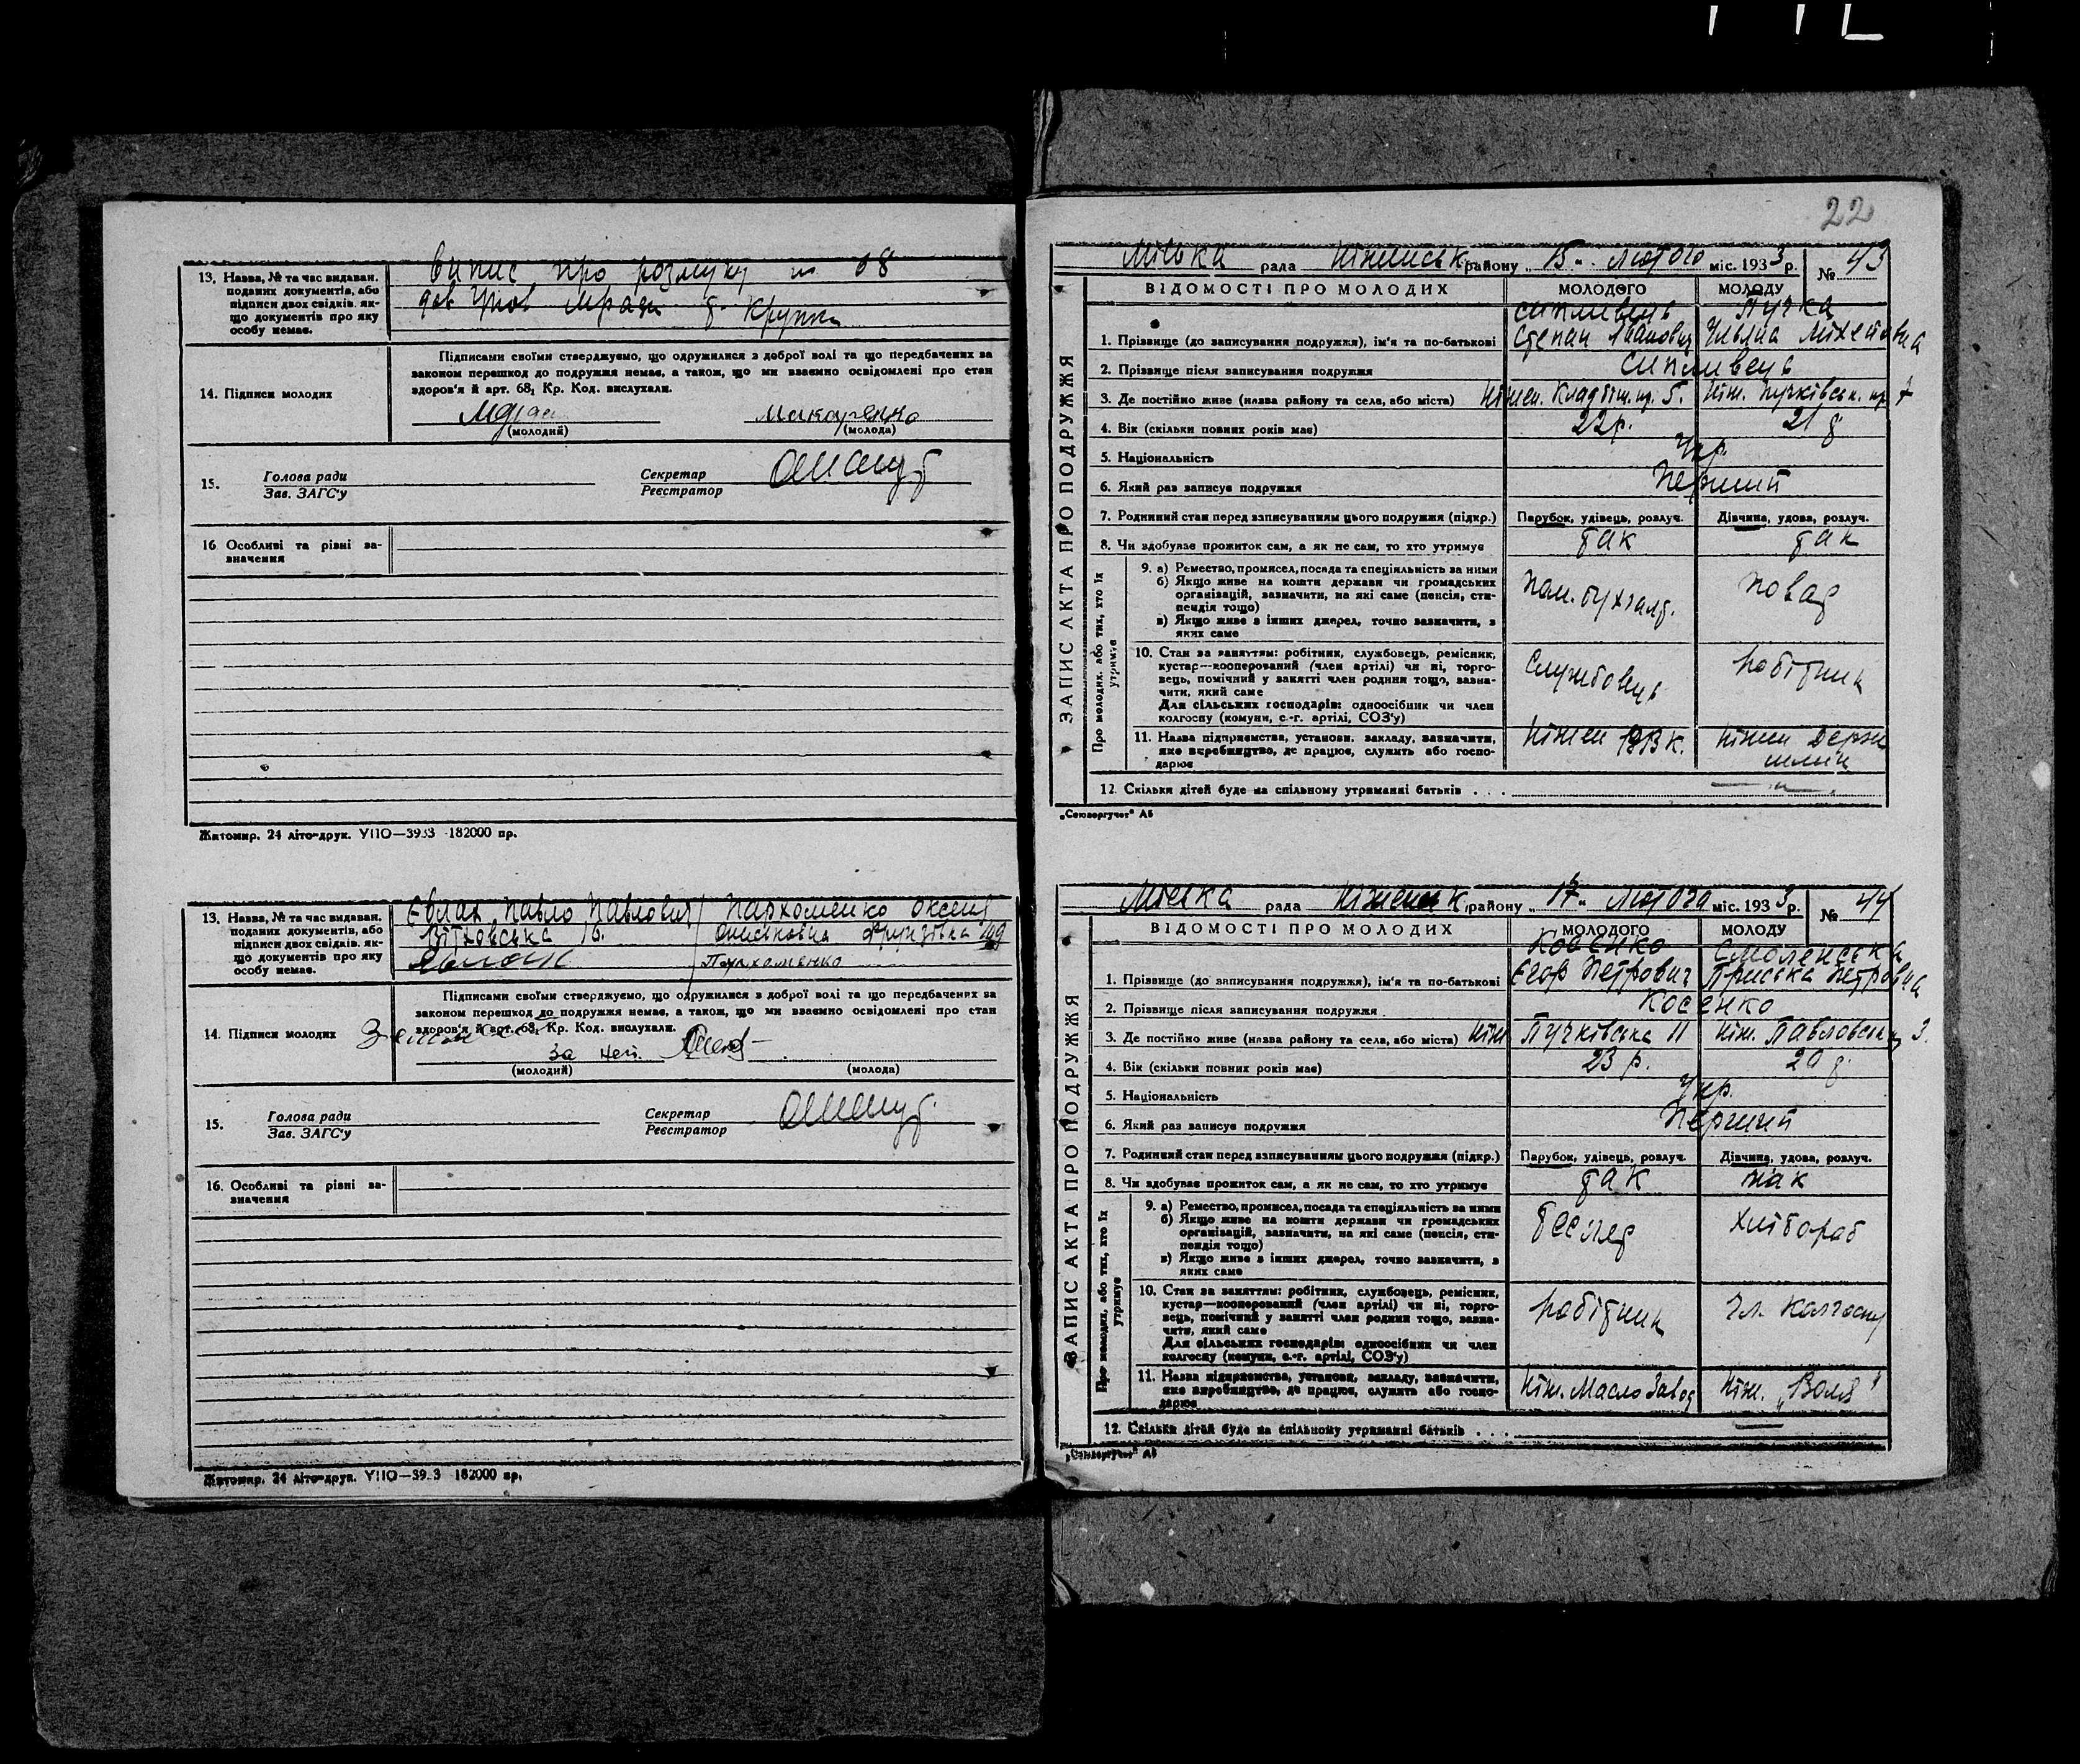 13. Назва, № та час видаван.
поданих документів, або
підписи двох свідків, як-
що документів про яку
особу немає.
Випис про розлуку № 68
14. Підписи молодих
Підписами своїми стверджуємо, що одружилися з доброї волі та що передбачених за
законом перешкод до подружжя немає, а також, що ми взаємно освідомлені про стан
здоров'я й арт. 68, Кр. Код. вислухали.
Макаренко
(молодий) (молода)
15. Голова ради
Зав. ЗАГС'у
Секретар
Реєстратор
16. Особливі та рівні за-
значення
Житомир. 24 літо-друк. УПО—3933 182000 пр.
13. Назва, № та час видаван.
поданих документів, або
підписи двох свідків, як-
що документів про яку
особу немає.
Євлах Павло Павлович / Пархоменко Оксена
Пархоменко
14. Підписи молодих
Підписами своїми стверджуємо, що одружилися з доброї волі та що передбачених за
законом перешкод до подружжя немає, а також, що ми взаємно освідомлені про стан
здоров'я й арт. 68, Кр. Код. вислухали.
за неї
(молодий) (молода)
15. Голова ради
Зав. ЗАГС'у
Секретар
Реєстратор
16. Особливі та рівні за-
значення
Житомир. 24 літо-друк. УПО—39.3 182000 пр.
22
ЗАПИС АКТА ПРО ПОДРУЖЖЯ
Міська рада Ніженськ. району „15“ Лютого міс. 1933 р. № 43
ВІДОМОСТІ ПРО МОЛОДИХ МОЛОДОГО МОЛОДУ
Сипливець Пучка
1. Прізвище (до записування подружжя), ім'я та по-батькові Степан Іванович Уляна Міхетовна
2. Прізвище після записування подружжя Сипливець
3. Де постійно живе (назва району та села, або міста) Ніжен. Кладбищ. пр. 5. Ніж. Пучківськ. пр. 7
4. Вік (скільки повних років має) 22 р. 21 р.
5. Національність Укр.
6. Який раз записує подружжя Перший
7. Родинний стан перед записуванням цього подружжя (підкр.) Парубок, удівець, розлуч. Дівчина, удова, розлуч.
8. Чи здобуває прожиток сам, а як не сам, то хто утримує так так
Про молодих, або тих, хто їх утримує
9. а) Ремество, промисел, посада та спеціяльність за ними
б) Якщо живе на кошти держави чи громадських
організацій, зазначити, на які саме (пенсія, сти-
пендія тощо)
в) Якщо живе з інших джерел, точно зазначити, з
яких саме
Пом. бухгалт. Повар
10. Стан за заняттям: робітник, службовець, ремісник,
кустар—кооперований (член артілі) чи ні, торго-
вець, помічний у занятті член родини тощо, зазна-
чити, який саме
Для сільських господарів: одноосібник чи член
колгоспу (комуни, с.-г. артілі, СОЗ'у)
Службовець робітник
11. Назва підприємства, установи, закладу, зазначити,
яке виробництво, де працює, служить або госпо-
дарює
Ніжен РВК. Ніжен Держ
млин
12. Скільки дітей буде на спільному утриманні батьків . . .
„Союзоргучет“ А5
ЗАПИС АКТА ПРО ПОДРУЖЖЯ
Міська рада Ніженськ. району „17“ Лютого міс. 1933 р. № 44
ВІДОМОСТІ ПРО МОЛОДИХ МОЛОДОГО МОЛОДУ
Косенко Смоленська
1. Прізвище (до записування подружжя), ім'я та по-батькові Єгор Петрович Приська Петровна
2. Прізвище після записування подружжя Косенко
3. Де постійно живе (назва району та села, або міста) Ніж Пучківська 11 Ніж. Павловськ. 3.
4. Вік (скільки повних років має) 23 р. 20 р.
5. Національність Укр.
6. Який раз записує подружжя Перший
7. Родинний стан перед записуванням цього подружжя (підкр.) Парубок, удівець, розлуч. Дівчина, удова, розлуч.
8. Чи здобуває прожиток сам, а як не сам, то хто утримує так так
Про молодих, або тих, хто їх утримує
9. а) Ремество, промисел, посада та спеціяльність за ними
б) Якщо живе на кошти держави чи громадських
організацій, зазначити, на які саме (пенсія, сти-
пендія тощо)
в) Якщо живе з інших джерел, точно зазначити, з
яких саме
Хлібороб
10. Стан за заняттям: робітник, службовець, ремісник,
кустар—кооперований (член артілі) чи ні, торго-
вець, помічний у занятті член родини тощо, зазна-
чити, який саме
Для сільських господарів: одноосібник чи член
колгоспу (комуни, с.-г. артілі, СОЗ'у)
робітник Чл. колгоспу
11. Назва підприємства, установи, закладу, зазначити,
яке виробництво, де працює, служить або госпо-
дарює
Ніж. Масло Завод Ніж. „Воля“
12. Скільки дітей буде на спільному утриманні батьків . . .
„Союзоргучет“ А5